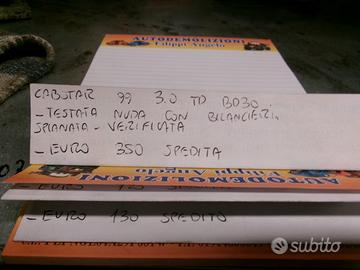 AUTODEMOLIZIONI
Filippi Angelo
CABSTAR 99 3.0 TD BD30.
- TESTATA NUDA CON BILANCIERI.
SPIANATA - VERIFICATA
- EURO 350 SPEDITA
AUTODEMOLIZIONI
Filippi Angelo
- EURO 130 SPEDITO
subito